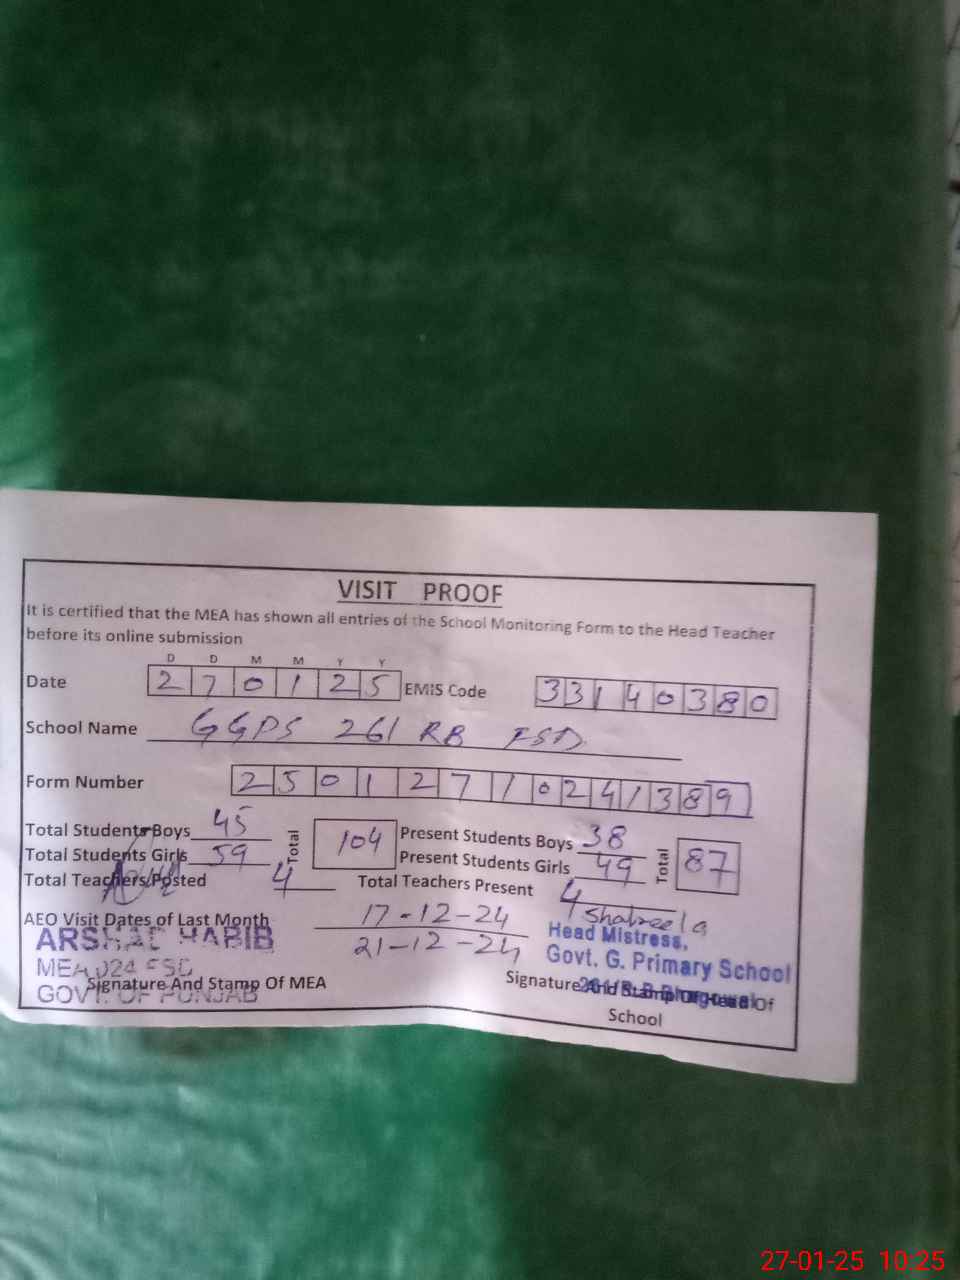 VISIT PROOF
It is certified that the MEA has shown all entries of the School Monitoring Form to the Head Teacher
before its online submission
D D M M Y Y
Date 2 7 0 1 2 5 EMIS Code 3 3 1 4 0 3 8 0
School Name GGPS 261 RB FSD
Form Number 2 5 0 1 2 7 1 0 2 4 1 3 8 9
Total Students Boys 45 Total 104 Present Students Boys 38 Total 87
Total Students Girls 59 Present Students Girls 49
Total Teachers Posted 4 Total Teachers Present 4
AEO Visit Dates of Last Month 17-12-24
21-12-24
Shabeela
ARSHAD HABIB
MEA 024 FSD
GOVT. OF PUNJAB
Signature And Stamp Of MEA
Head Mistress,
Govt. G. Primary School
Signature And Stamp Of Head Of
School
27-01-25 10:25